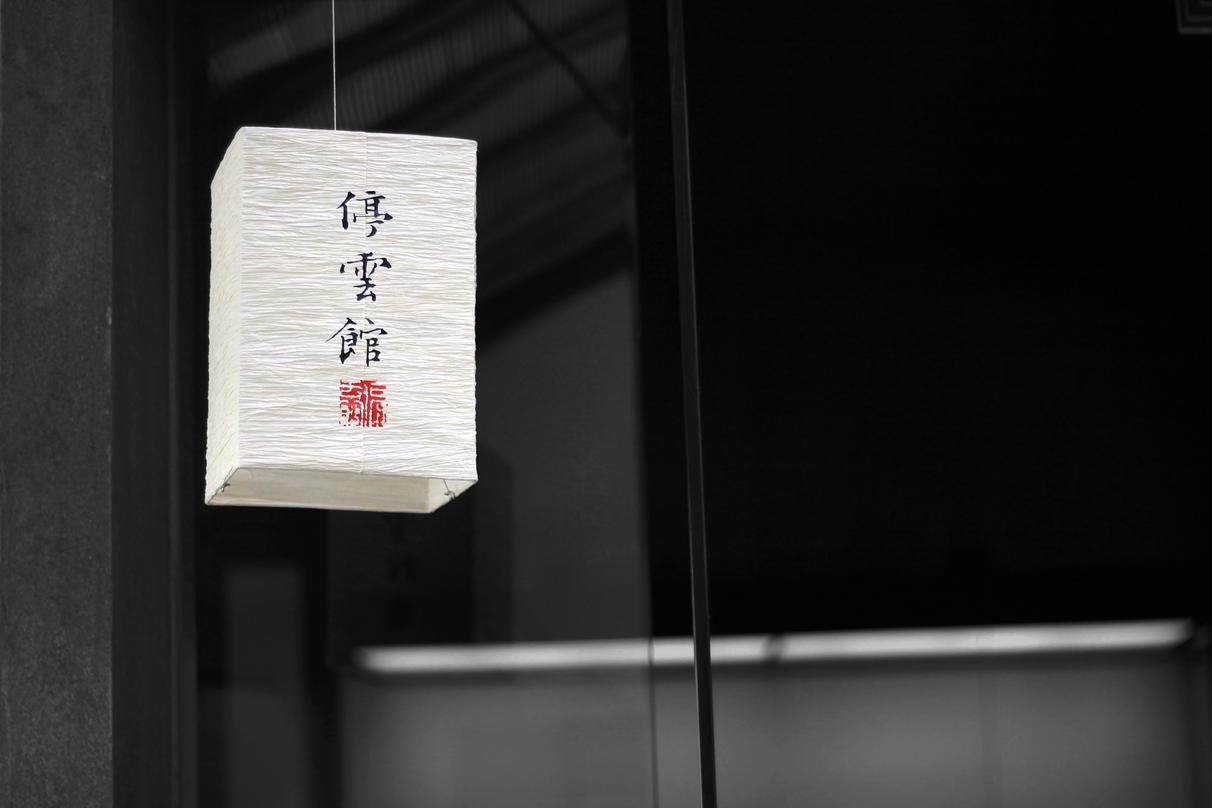 停雲館